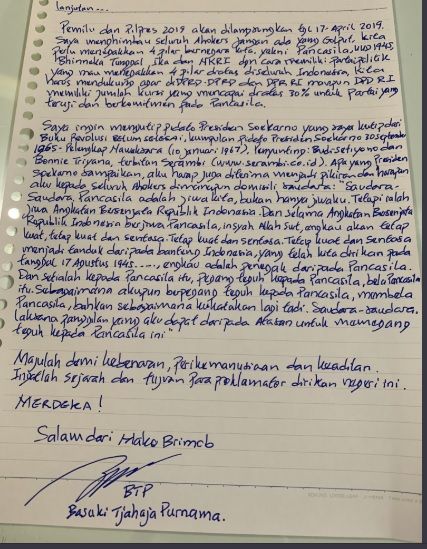 lanjutan...
Pemilu dan Pilpres 2019 akan dilangsungkan tgl 17 April 2019.
Saya menghimbau seluruh Ahokers jangan ada yang Golput, kita
perlu menegakkan 4 pilar bernegara kita, yakni Pancasila, UUD 1945,
Bhinneka Tunggal Ika dan NKRI dgn cara memiliki partai politik
yang mau menegakkan 4 pilar diatas di seluruh Indonesia, kita
harus mendukung agar di DPRD-DPRD dan DPR RI maupun DPD RI
memiliki jumlah kursi yang mencapai diatas 30% untuk Partai yang
teruji dan berkomitmen pada Pancasila.
Saya ingin mengutip pidato Presiden Soekarno yang saya kutip dari
Buku Revolusi belum selesai, kumpulan pidato Presiden Soekarno 30 September
1965 - Pelengkap Nawaksara (10 januari 1967), Penyunting: Budi Setiyono dan
Bonnie Triyana, terbitan Serambi (www.serambi.co.id). Apa yang Presiden
Soekarno sampaikan, aku harap juga diterima menjadi pikiran dan harapan
aku kepada seluruh Ahokers dimanapun domisili saudara: "Saudara-
Saudara, Pancasila adalah jiwa kita, bukan hanya jiwaku. Tetapi ialah
jiwa Angkatan Bersenjata Republik Indonesia. Dan selama Angkatan Bersenjata
Republik Indonesia berjiwa Pancasila, insyah Allah swt, engkau akan tetap
kuat, tetap kuat dan sentosa. Tetap kuat dan sentosa. Tetap kuat dan sentosa
menjadi tanduk daripada banteng Indonesia, yang telah kita dirikan pada
tanggal 17 Agustus 1945....., engkau adalah penegak daripada Pancasila.
Dan setialah kepada Pancasila itu, pegang teguh kepada Pancasila, bela Pancasila
itu. Sebagaimana akupun berpegang teguh kepada Pancasila, membela
Pancasila, bahkan sebagaimana kukatakan lagi tadi. Saudara-saudara.
laksana panggilan yang aku dapat daripada Atasan untuk memegang
teguh kepada Pancasila ini"
Majulah demi kebenaran, perikemanusiaan dan keadilan.
Ingatlah sejarah dan tujuan para proklamator dirikan negeri ini.
MERDEKA!
Salam dari Mako Brimob
BTP
Basuki Tjahaja Purnama.